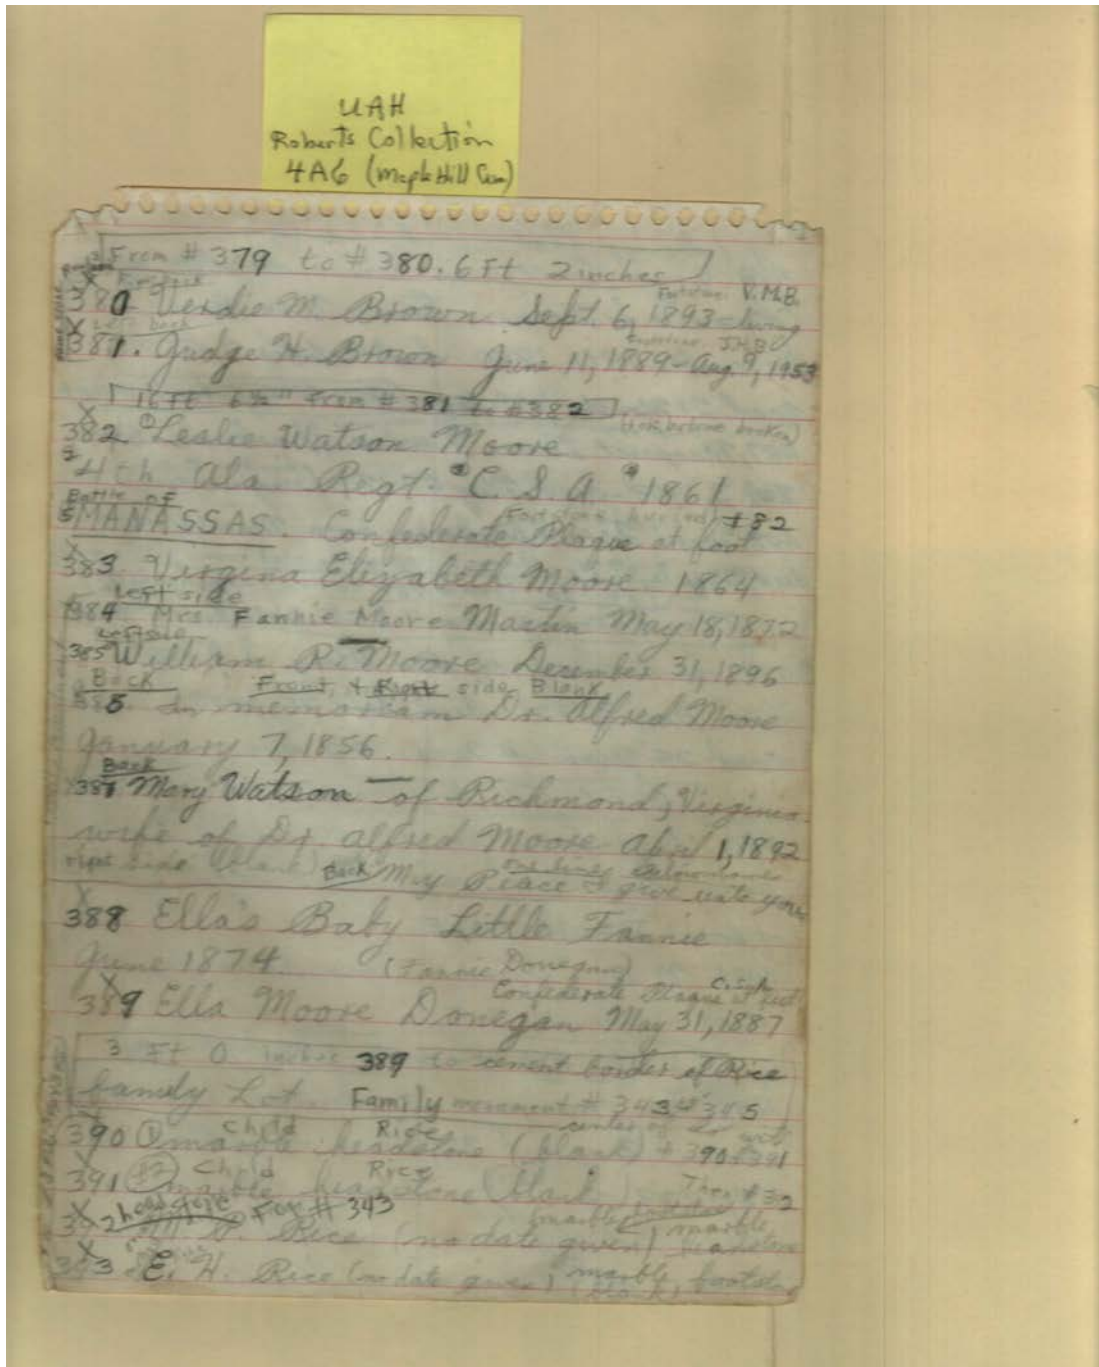 UAH
Roberts Collection
4A6 (Maple Hill Cem)
From # 379 to # 380. 6 Ft 2 inches
Footstone V.M.B.
380 Verdie M. Brown Sept. 6, 1893 - living
Left back
Footstone J.H.B.
381. Judge H. Brown June 11, 1889 - Aug. 9, 1953
16 Ft 6½" From # 381 to # 382
382 Leslie Watson Moore
4th Ala. Regt. C. S. A. 1861
Battle of
MANASSAS. Confederate Plaque at foot
383. Virgina Elizabeth Moore 1864
Left side
384 Mrs. Fannie Moore Martin May 18, 1872
Left side
385 William R. Moore December 31, 1896
Back Front, & Right side, Blank
In memoriam Dr. Alfred Moore
January 7, 1856.
Back
387 Mary Watson - of Richmond, Virginia
wife of Dr. Alfred Moore April 1, 1892
right side (blank) Back My Peace I give unto you
388 Ella's Baby Little Fannie
June 1874 (Fannie Donegan)
Confederate Plaque at feet
389 Ella Moore Donegan May 31, 1887
3 Ft 0 inches 389 to cement border of Rice
family Lot. Family monument # 343 345
center of
Child Rice
390 marble headstone (blank) # 390 391
Child Rice
391 marble headstone (blank)
headstone For # 343
Rice (no date given)
393 E. H. Rice (no date given) marble footstone